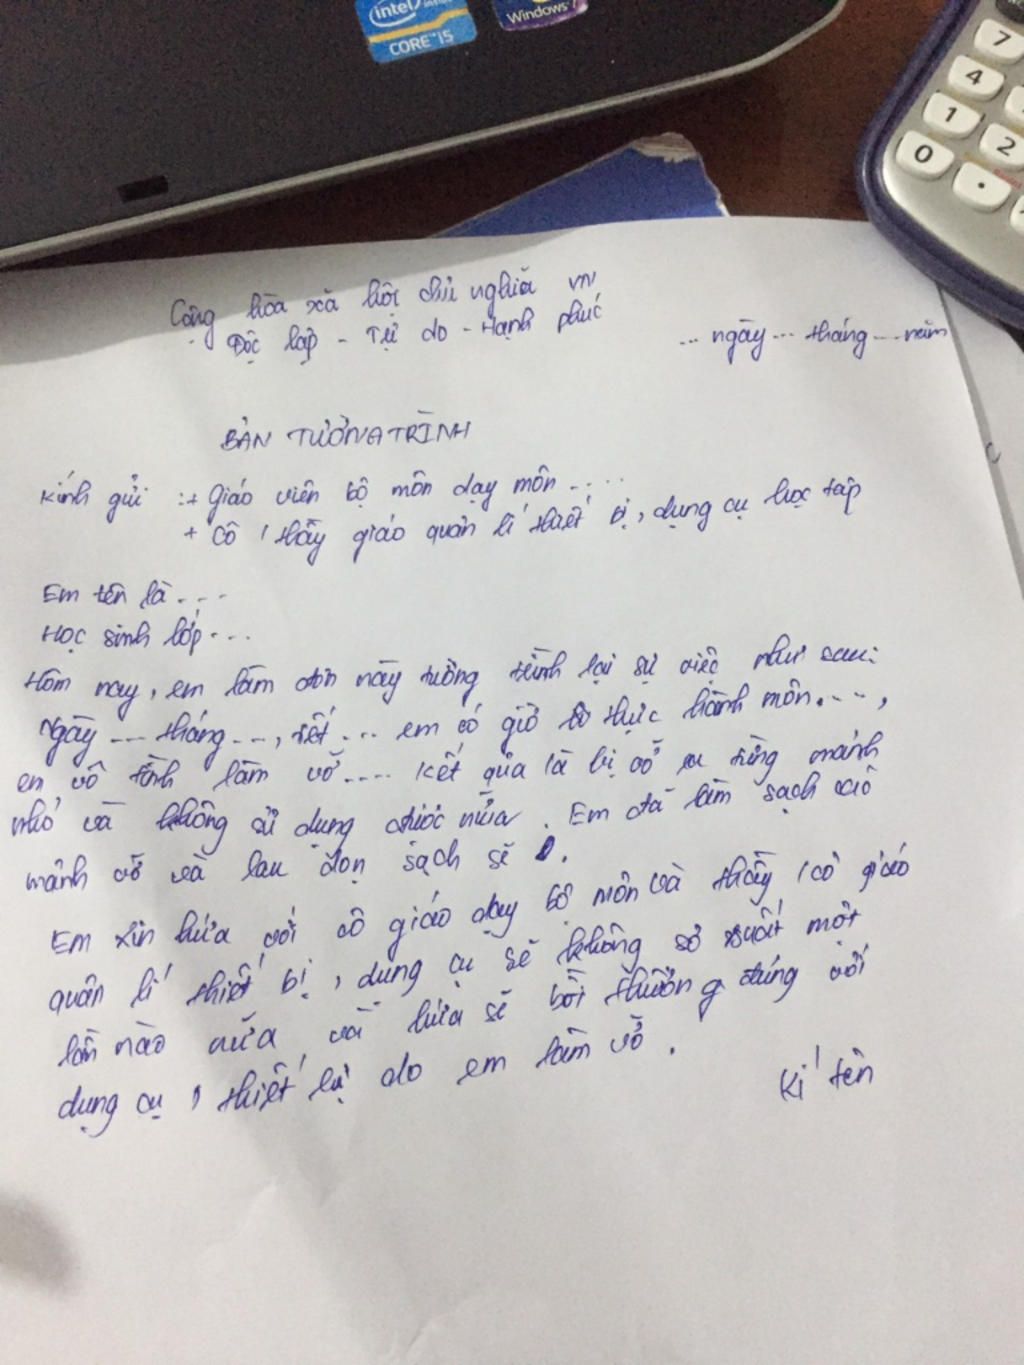 intel
CORE i5
Windows 7
7
4
1
2
0
.
Cộng hòa xã hội chủ nghĩa VN
Độc lập - Tự do - Hạnh phúc
... ngày ... tháng ... năm
BẢN TƯỜNG TRÌNH
Kính gửi :+ Giáo viên bộ môn dạy môn ....
+ Cô / thầy giáo quản lí thiết bị, dụng cụ học tập
Em tên là ...
Học sinh lớp ...
Hôm nay, em làm đơn này tường trình lại sự việc như sau:
Ngày ... tháng ..., tiết ... em có giờ thực hành môn ....,
em vô tình làm vỡ .... Kết quả là bị vỡ ra từng mảnh
nhỏ và không sử dụng được nữa. Em đã làm sạch
mảnh vỡ và lau dọn sạch sẽ.
Em xin hứa với cô giáo dạy bộ môn và thầy / cô giáo
quản lí thiết bị, dụng cụ sẽ không sơ suất một
lần nào nữa và hứa sẽ bồi thường đúng với
dụng cụ, thiết bị do em làm vỡ.
Kí tên